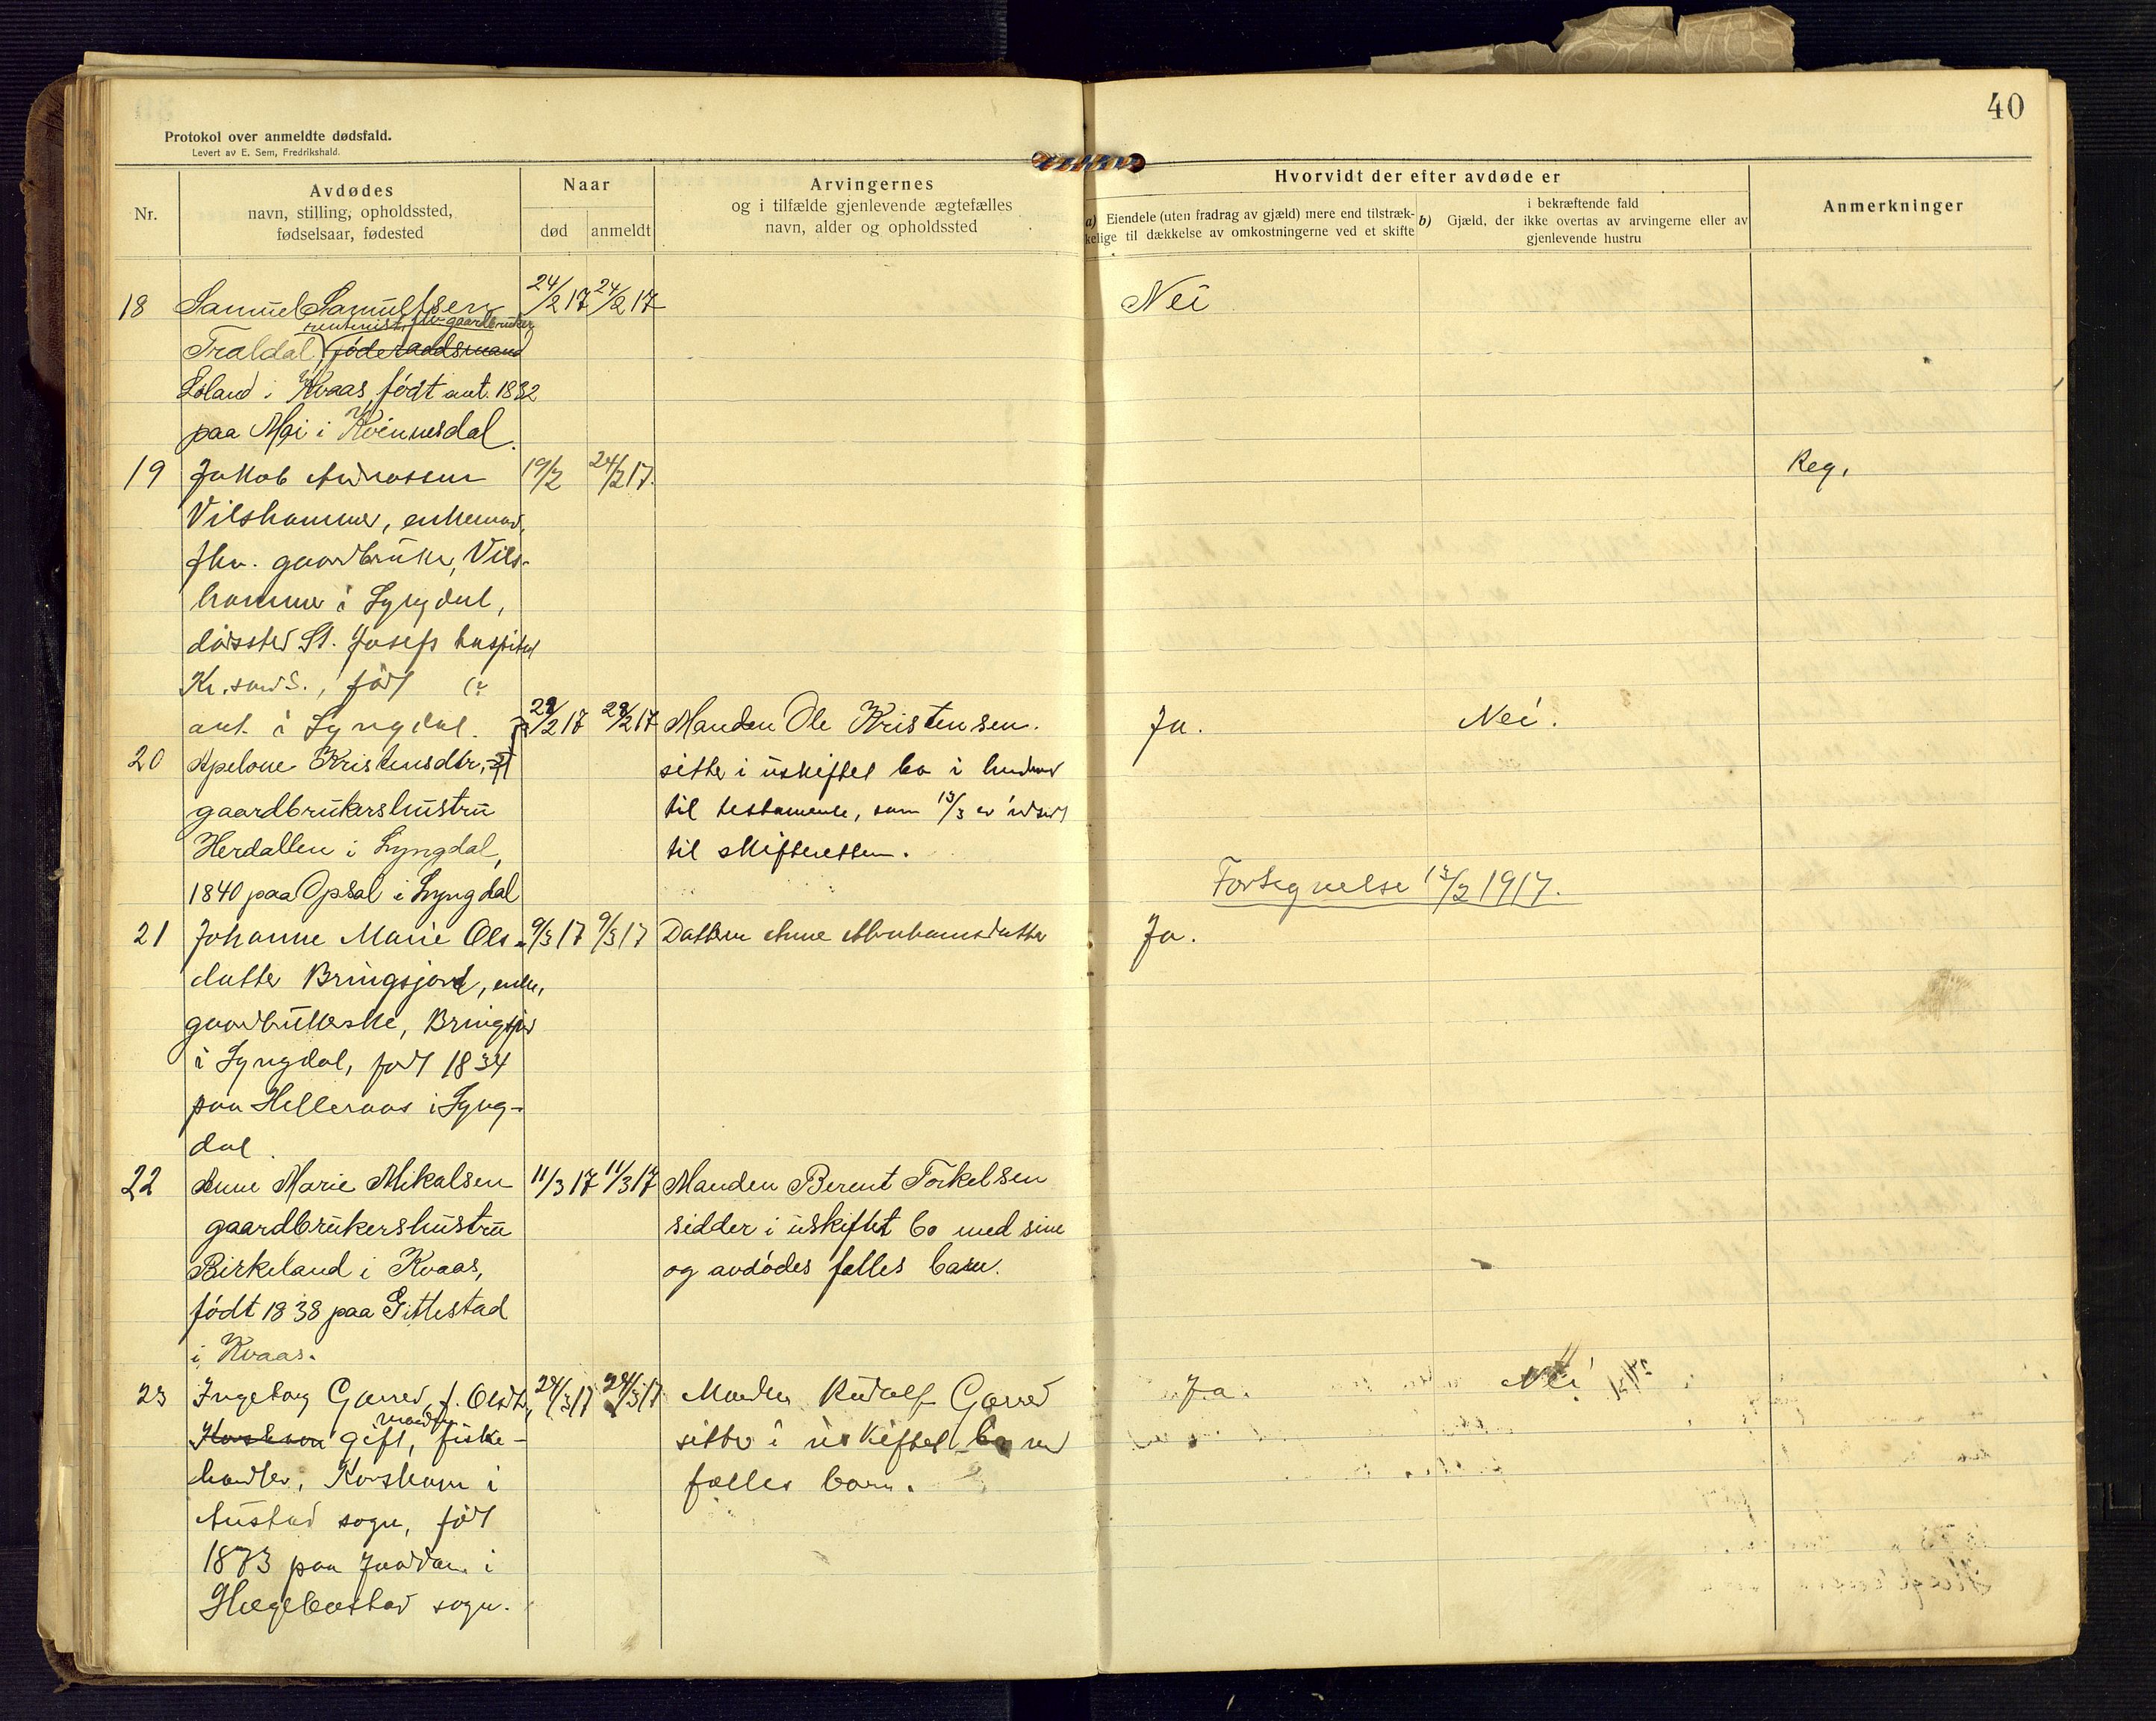 40
Protokol over anmeldte dødsfald.
Levert av E. Sem, Fredrikshald.
Nr.
Avdødes
navn, stilling, opholdssted,
fødselsaar, fødested
Naar
død
anmeldt
Arvingernes
og i tilfælde gjenlevende ægtefælles
navn, alder og opholdssted
Hvorvidt der efter avdøde er
a) Eiendele (uten fradrag av gjæld) mere end tilstræk-
kelige til dækkelse av omkostningerne ved et skifte
i bekræftende fald
b) Gjæld, der ikke overtas av arvingerne eller av
gjenlevende hustru
Anmerkninger
18 Samuel Samuelsen 24/2 17 24/2 17 Nei
rentenist, fhv gaardbruker
Traldal, føderaadsmand
i Kvaas, født ant. 1832
paa Moi i Kvinnesdal.
19 Jakob Andreassen 19/2 24/2 17. Reg.
Vilshammer, enkemand,
fhv. gaardbruker, Vils-
hammer i Lyngdal,
dødssted St. Josefs hospital
Kr.sand S., født
ant. i Lyngdal. 17 17 Manden Ole Kristensen. Ja. Nei.
20 Apelone Kristensdtr,
sitter i uskiftet bo i henhold
gaardbrukershustru
til testamente, som 13/3 er indsendt
Herdallen i Lyngdal,
til skifteretten.
1840 paa Opsal i Lyngdal
Forsegnelse 13/3 1917.
21 Johanne Marie Ols- 9/3 17 9/3 17 Datteren Anne Abrahamsdatter Ja.
datter Bringsjord, enke,
gaardbrukerske, Bringsjord
i Lyngdal, født 1834
paa Helleraas i Lyng-
dal.
22 Anne Marie Mikalsen 11/3 17 11/3 17 Manden Berent Torkelsen
gaardbrukershustru
sidder i uskiftet bo med sine
Birkeland i Kvaas,
og avdødes fælles barn.
født 1838 paa Gittlestad
i Kvaas.
23 Ingeborg Garred, f. Olsdtr, 24/3 17 24/3 17 Manden Rudolf Garred Ja. Nei
manden
Korshavn gift, fiske-
sitter i uskiftet bo med
handler, Korshavn i
fælles barn.
Austad sogn, født
1873 paa i
Hægebostad sogn.